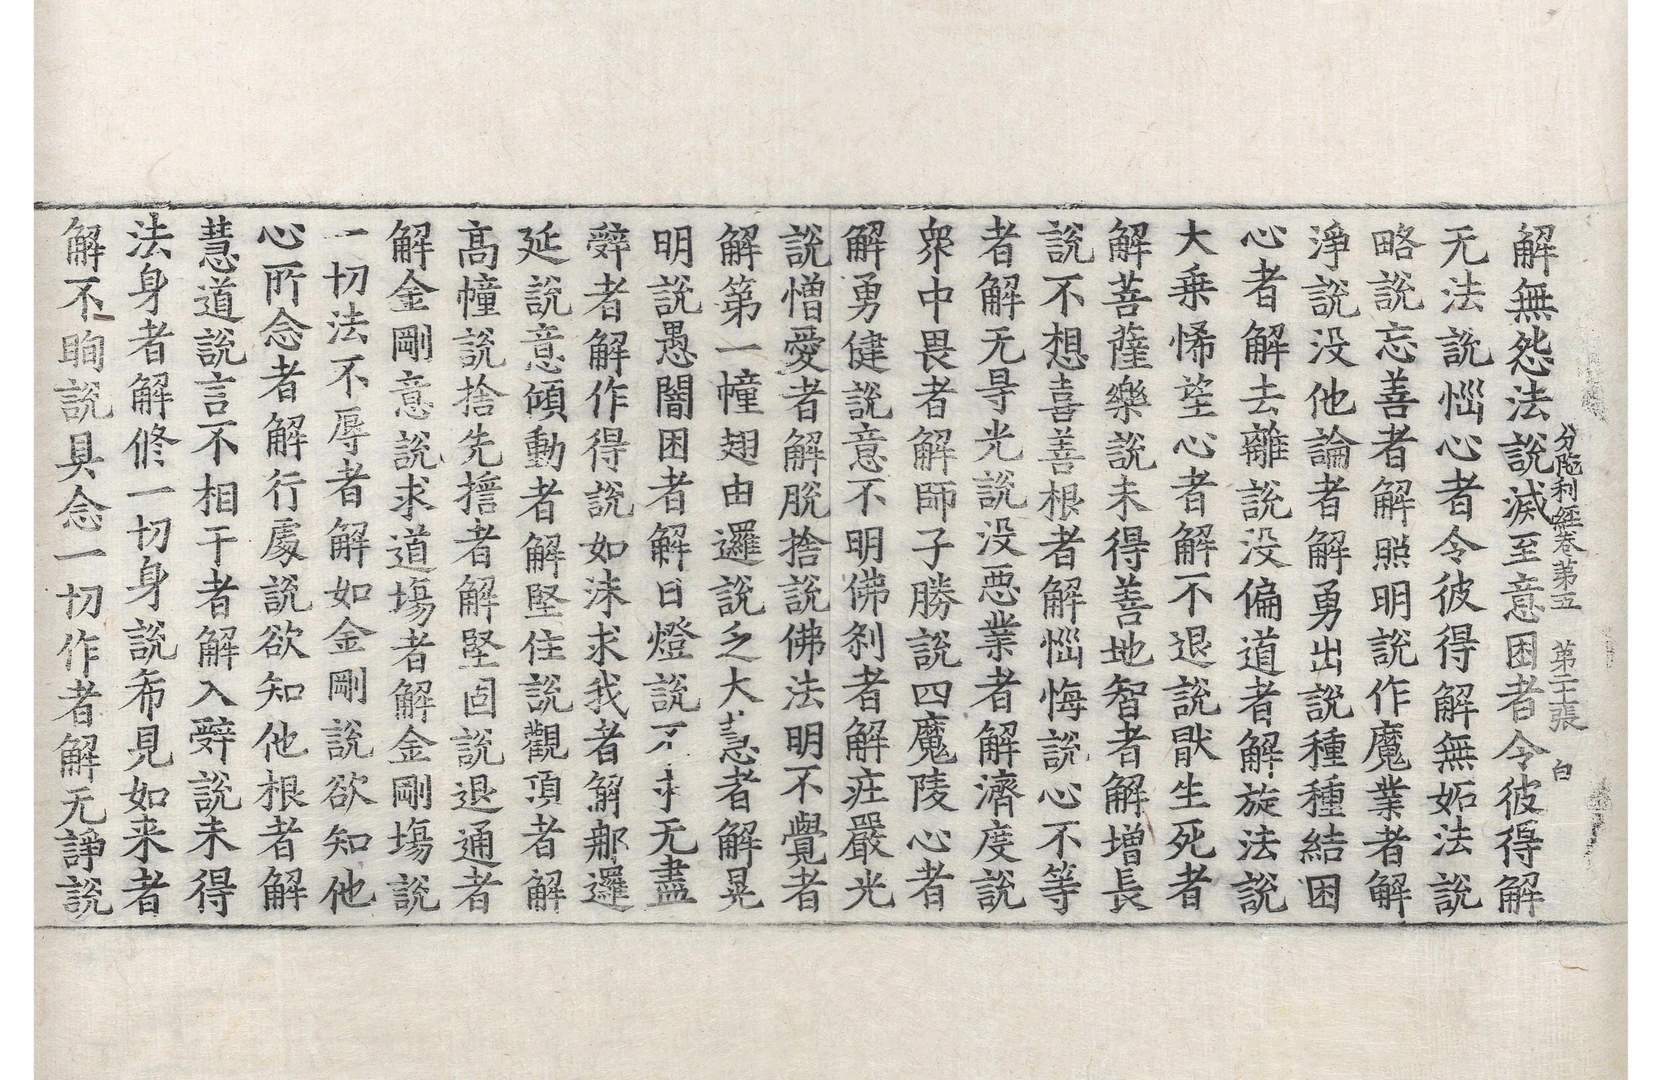 分陁利經卷第五 第二十張 白
解無怨法說滅至意困者令彼得解
无法說惱心者令彼得解無妬法說
略說忘善者解照明說作魔業者解
淨說没他論者解勇出說種種結困
心者解去離說没偏道者解旋法說
大乗悕望心者解不退說猒生死者
解菩薩樂說未得善地智者解增長
說不想喜善根者解惱悔說心不等
者解无㝵光說没悪業者解濟度說
衆中畏者解師子勝說四魔陵心者
解勇健說意不明佛刹者解庄嚴光
說憎愛者解脫捨說佛法明不覺者
解第一幢翅由邏說乏大慧者解晃
明說愚闇困者解日燈說不求无盡
辤者解作得說如沫求我者解那邏
延說意傾動者解堅住說觀頂者解
高幢說捨先擔者解堅固說退通者
解金剛意說求道場者解金剛場說
一切法不辱者解如金剛說欲知他
心所念者解行處說欲知他根者解
慧道說言不相干者解入辤說未得
法身者解修一切身說希見如来者
解不眴說具念一切作者解无諍說